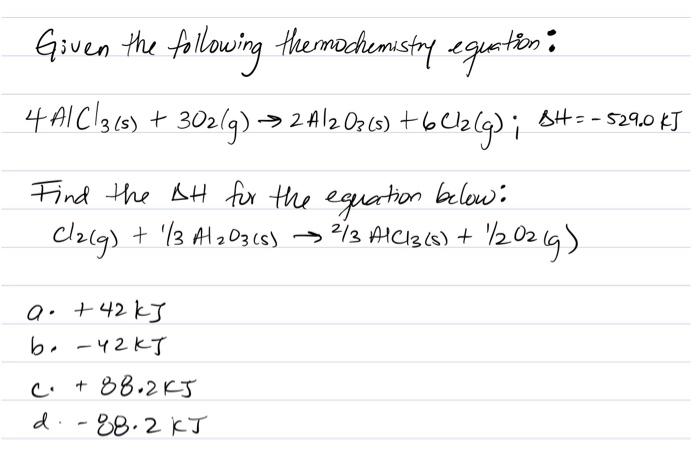 Given the following thermochemistry equation:
4AlCl3(s) + 3O2(g) → 2Al2O3(s) + 6Cl2(g); ΔH = -529.0 kJ
Find the ΔH for the equation below:
Cl2(g) + 1/3 Al2O3(s) → 2/3 AlCl3(s) + 1/2O2(g)
a. +42 kJ
b. -42 kJ
c. + 88.2 KJ
d. -88.2 kJ